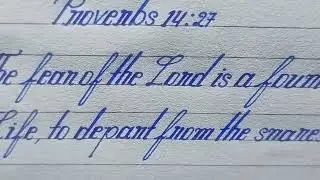 Proverbs 14:27
The fear of the Lord is a foun
Life, to depart from the snares